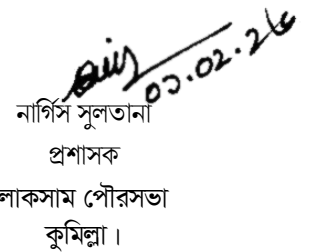 ০১.০২.২৬
নার্গিস সুলতানা
প্রশাসক
লাকসাম পৌরসভা
কুমিল্লা।